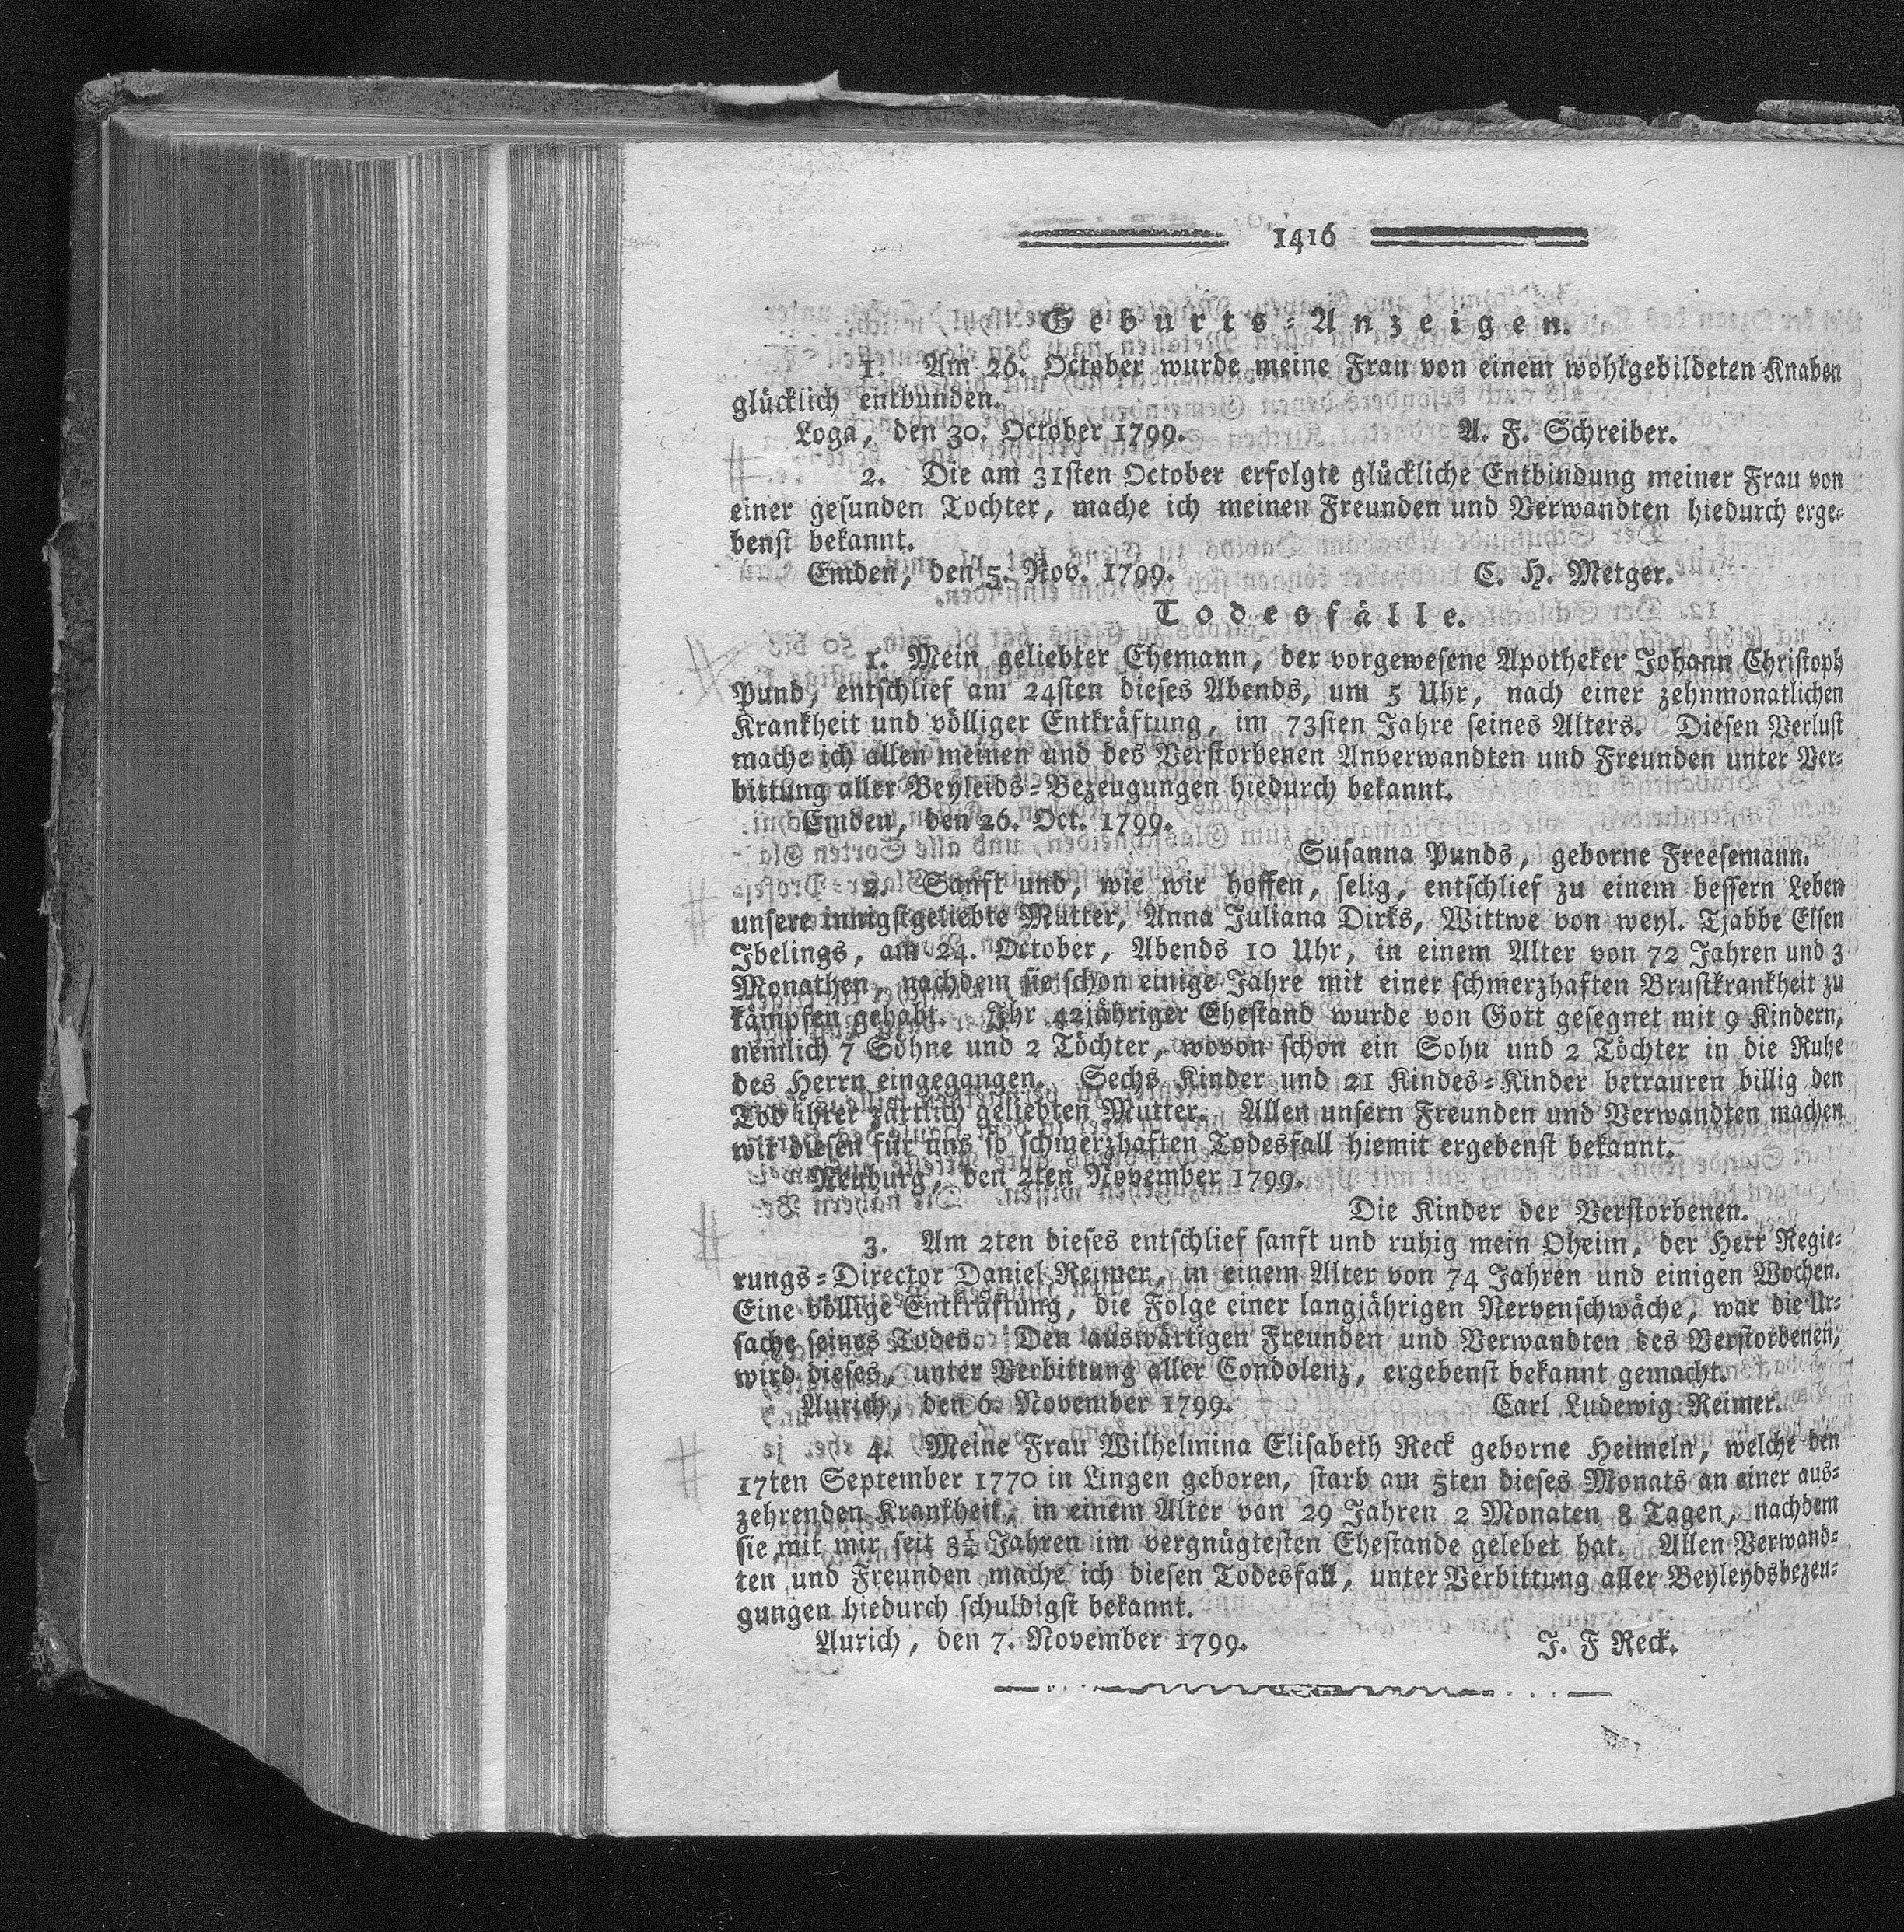 1416
Geburts-Anzeigen.
1. Am 26. October wurde meine Frau von einem wohlgebildeten Knaben
glücklich entbunden.
Loga, den 30. October 1799. A. F. Schreiber.
2. Die am 31sten October erfolgte glückliche Entbindung meiner Frau von
einer gesunden Tochter, mache ich meinen Freunden und Verwandten hiedurch erge-
benst bekannt.
Emden, den 5. Nov. 1799. C. H. Metger.
Todesfälle.
1. Mein geliebter Ehemann, der vorgewesene Apotheker Johann Christoph
Pund, entschlief am 24sten dieses Abends, um 5 Uhr, nach einer zehnmonatlichen
Krankheit und völliger Entkräftung, im 73sten Jahre seines Alters. Diesen Verlust
mache ich allen meinen und des Verstorbenen Anverwandten und Freunden unter Ver-
bittung aller Beyleids-Bezeugungen hiedurch bekannt.
Emden, den 26. Oct. 1799.
Susanna Punds, geborne Freesemann.
2. Sanft und, wie wir hoffen, selig, entschlief zu einem bessern Leben
unsere innigstgeliebte Mutter, Anna Juliana Dirks, Wittwe von weyl. Tjabbe Elsen
Ibelings, am 24. October, Abends 10 Uhr, in einem Alter von 72 Jahren und 3
Monathen, nachdem sie schon einige Jahre mit einer schmerzhaften Brustkrankheit zu
kämpfen gehabt. Ihr 42jähriger Ehestand wurde von Gott gesegnet mit 9 Kindern,
nemlich 7 Söhne und 2 Töchter, wovon schon ein Sohn und 2 Töchter in die Ruhe
des Herrn eingegangen. Sechs Kinder und 21 Kindes-Kinder betrauren billig den
Tod ihrer zärtlich geliebten Mutter. Allen unsern Freunden und Verwandten machen
wir diesen für uns so schmerzhaften Todesfall hiemit ergebenst bekannt.
Neuburg, den 2ten November 1799.
Die Kinder der Verstorbenen.
3. Am 2ten dieses entschlief sanft und ruhig mein Oheim, der Herr Regie-
rungs-Director Daniel Reimer, in einem Alter von 74 Jahren und einigen Wochen.
Eine völlige Entkräftung, die Folge einer langjährigen Nervenschwäche, war die Ur-
sache seines Todes. Den auswärtigen Freunden und Verwandten des Verstorbenen,
wird dieses, unter Verbittung aller Condolenz, ergebenst bekannt gemacht.
Aurich, den 6. November 1799. Carl Ludewig Reimer.
4. Meine Frau Wilhelmina Elisabeth Reck geborne Heimeln, welche den
17ten September 1770 in Lingen geboren, starb am 5ten dieses Monats an einer aus-
zehrenden Krankheit, in einem Alter von 29 Jahren 2 Monaten 8 Tagen, nachdem
sie mit mir seit Jahren im vergnügtesten Ehestande gelebet hat. Allen Verwand-
ten und Freunden mache ich diesen Todesfall, unter Verbittung aller Beyleydsbezeu-
gungen hiedurch schuldigst bekannt.
Aurich, den 7. November 1799. J. F Reck.